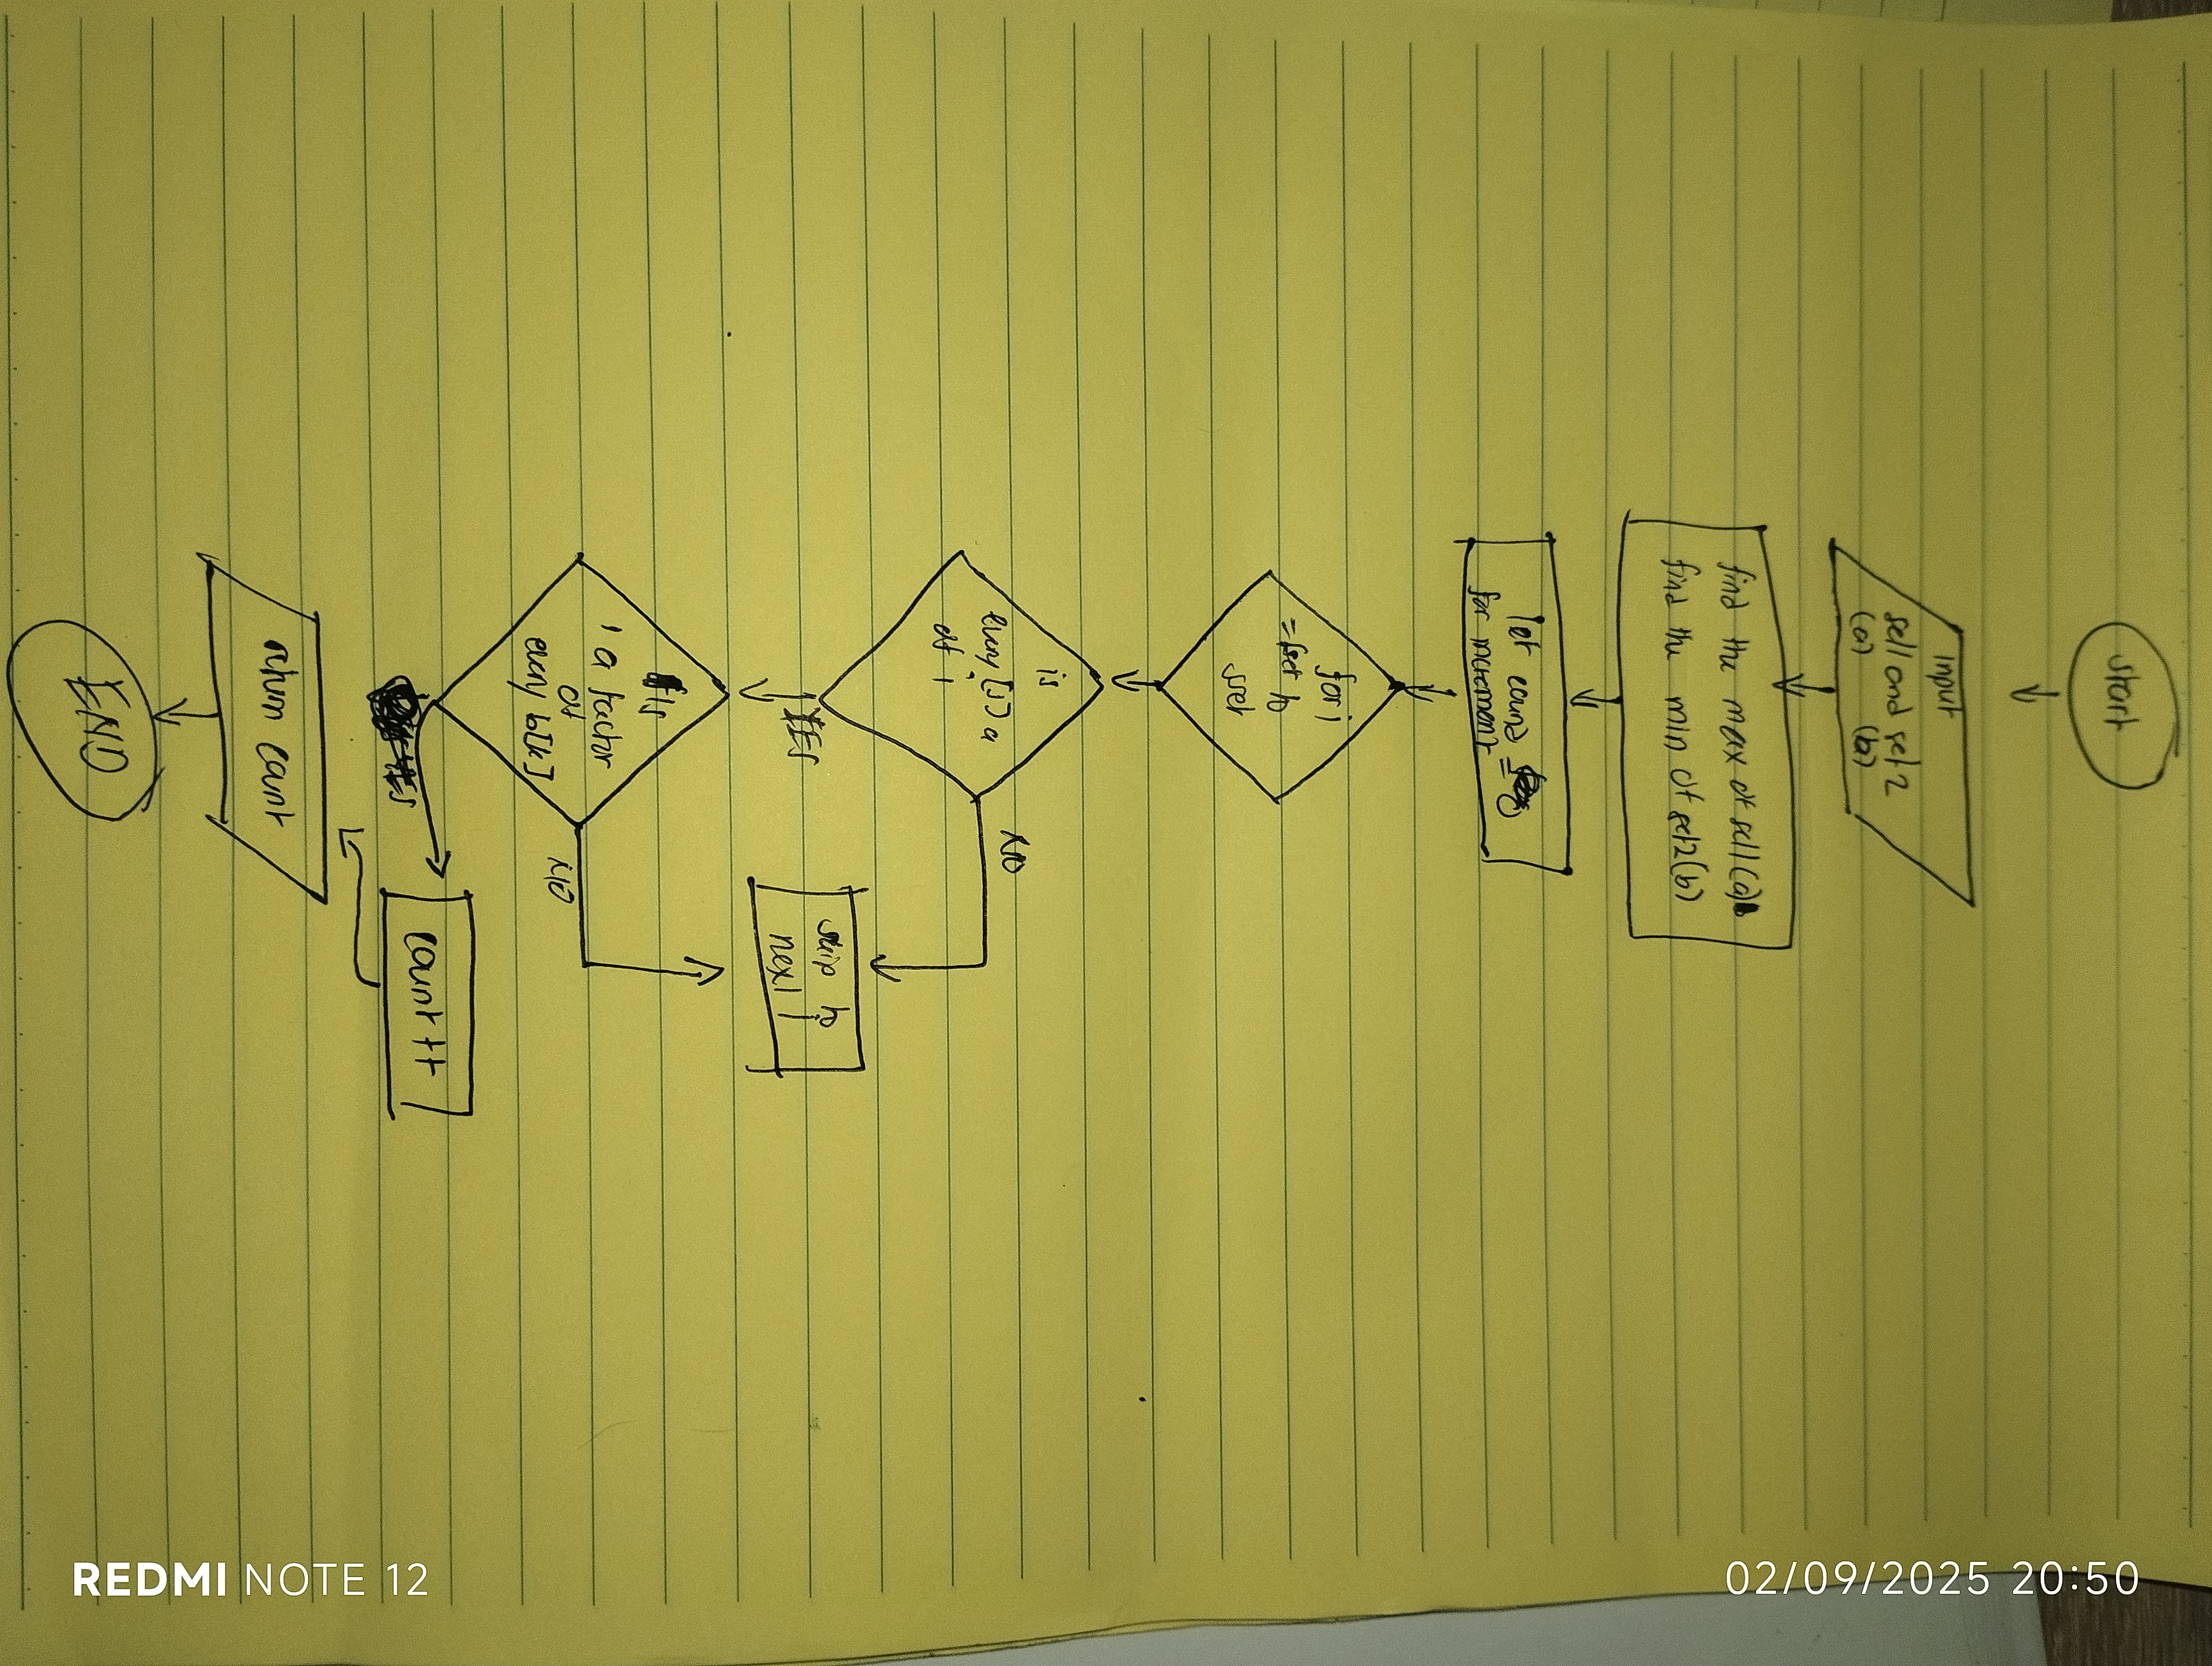 start
Input
set1 and set2
(a) (b)
find the max of set1(a)
find the min of set2(b)
let count = 0
for increment
for i
= set to
set
is
every [j] a
of i
NO
YES
skip to
next i
Is
i a factor
of
every b[k]
NO
YES
count++
return count
END
REDMI NOTE 12
02/09/2025 20:50